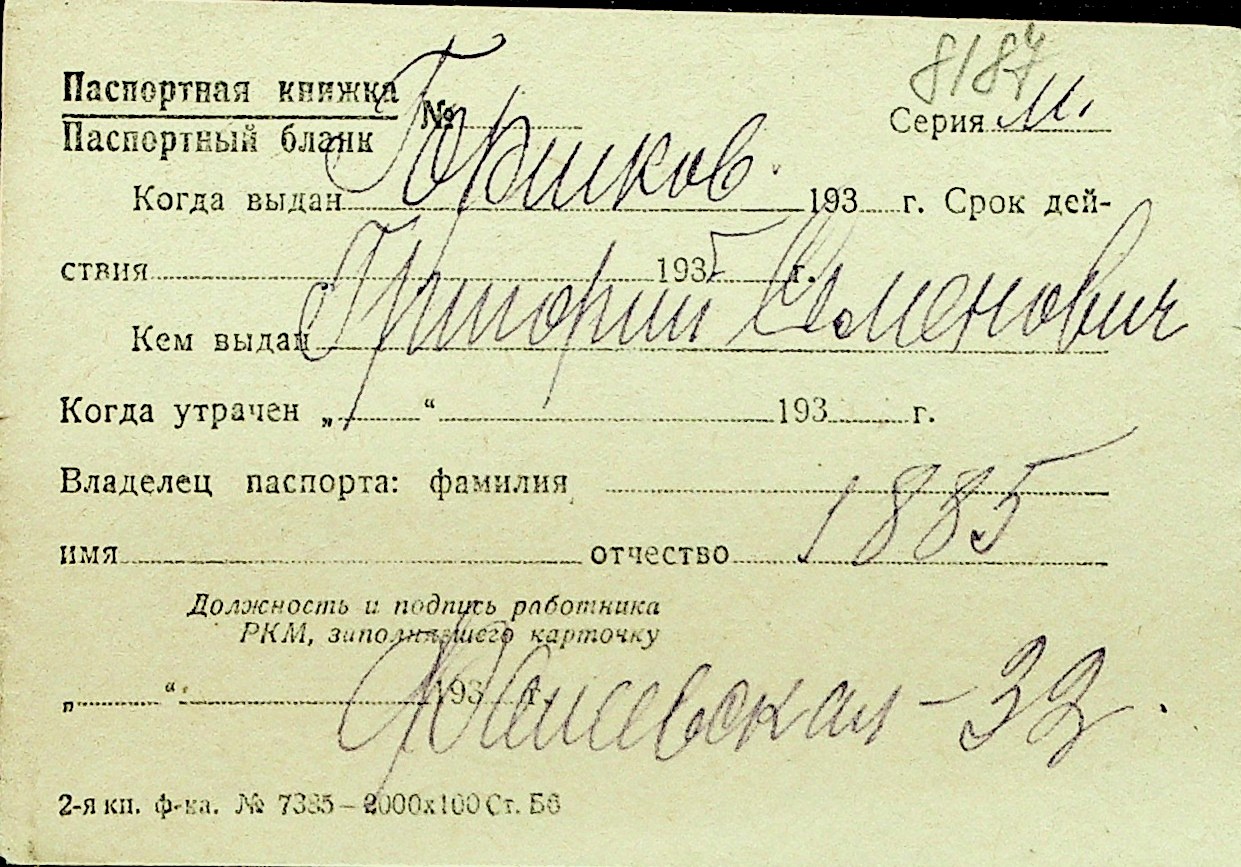 8187
Паспортная книжка
Паспортный бланк № Серия М.
Горшков
Когда выдан 193 г. Срок дей-
ствия 1935 г.
Григорий Семенович
Кем выдан
Когда утрачен „ “ 193 г.
Владелец паспорта: фамилия
1885
имя отчество
Должность и подпись работника
РКМ, заполнявшего карточку
„ “ 193 г.
32.
2-я кн. ф-ка. № 7385—2000х100 Ст. Бб